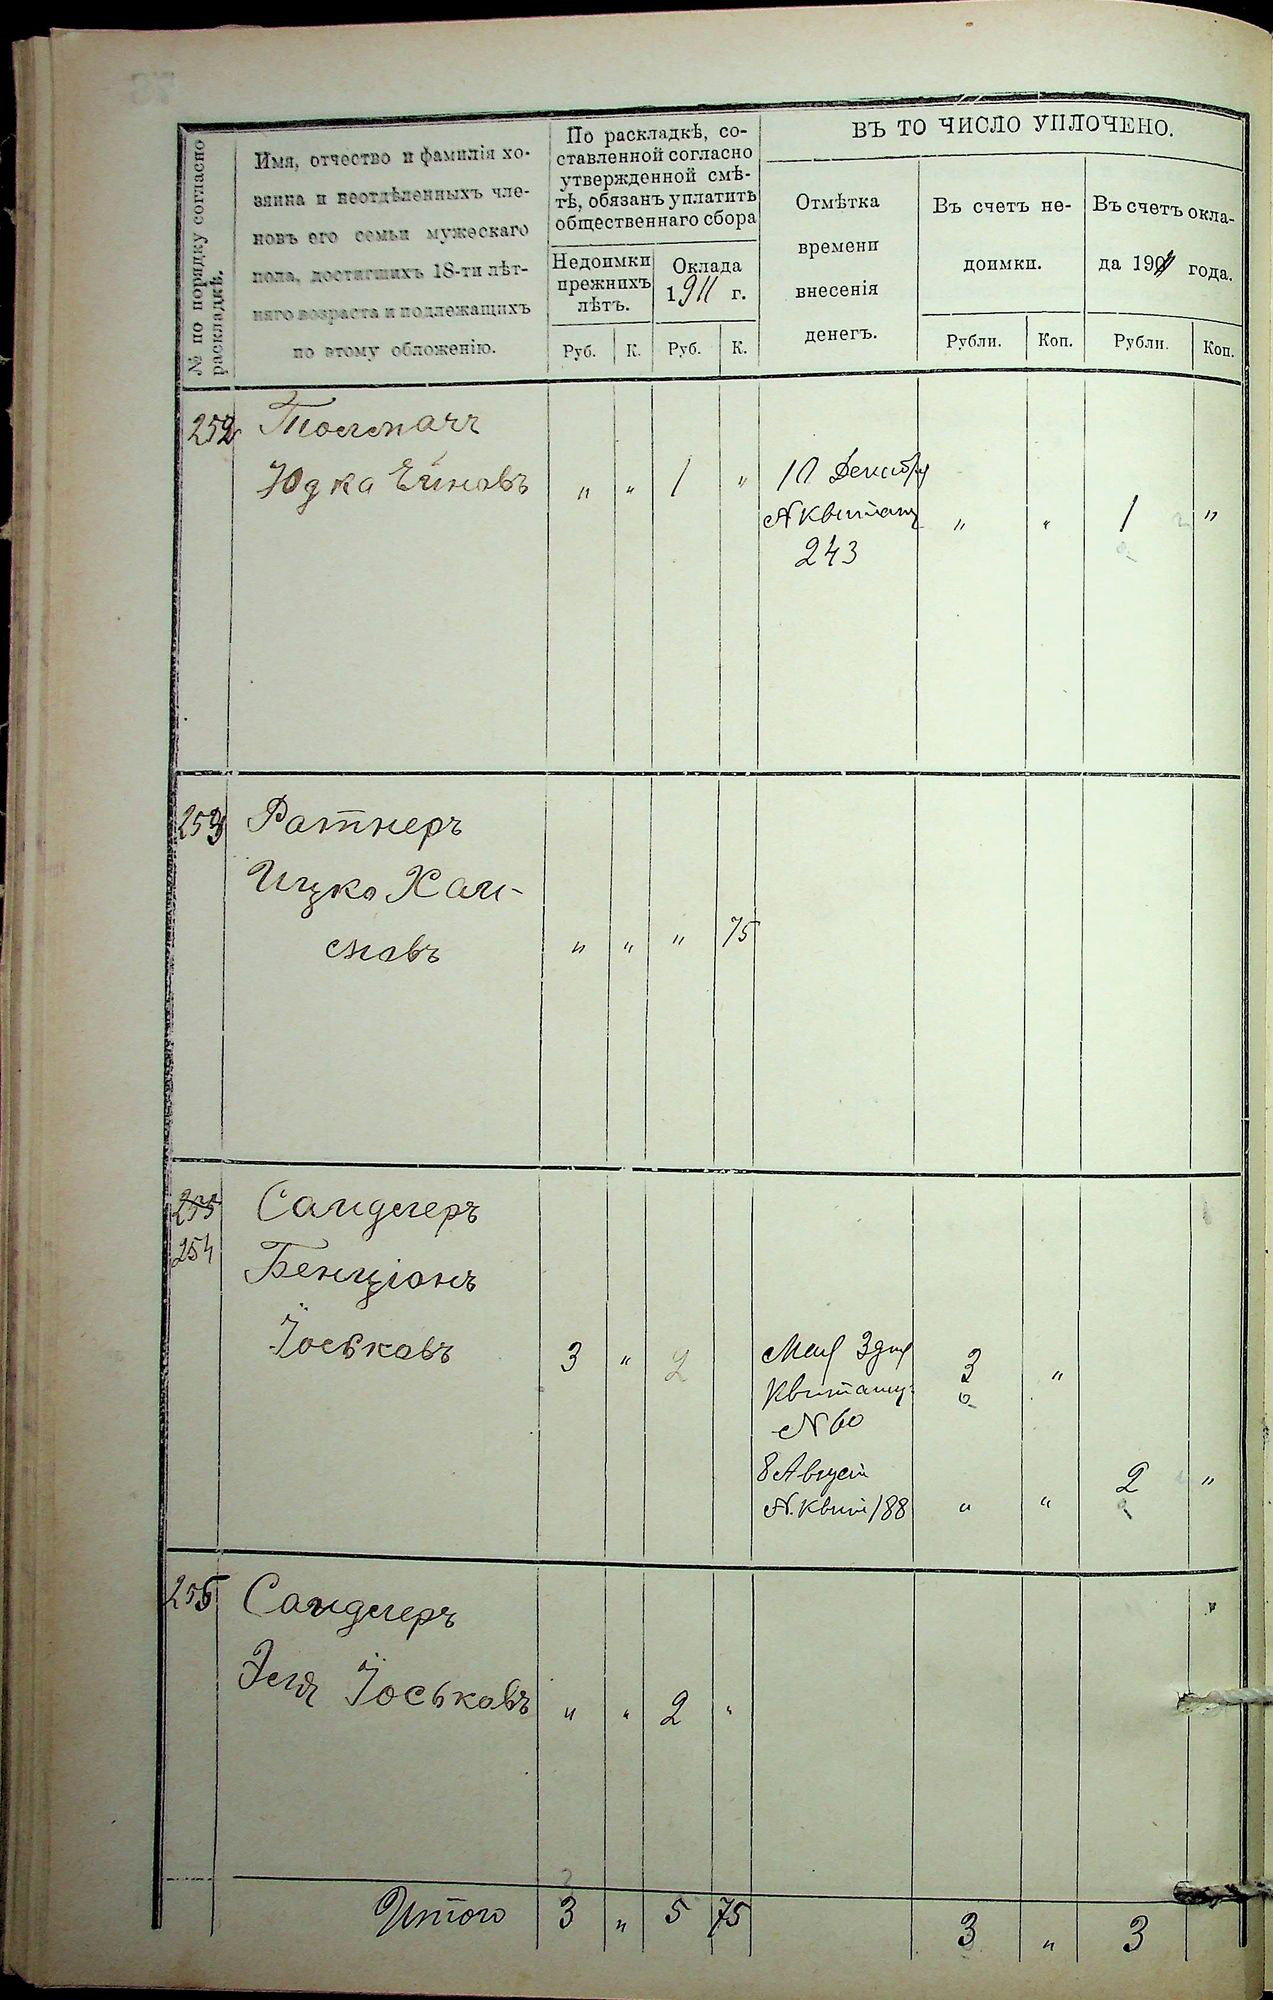 № по порядку согласно
раскладкѣ.
Имя, отчество и фамилія хо-
зяина и неотдѣленныхъ чле-
новъ его семьи мужескаго
пола, достигшихъ 18-ти лѣт-
няго возраста и подлежащихъ
по этому обложенію.
По раскладкѣ, со-
ставленной согласно
утвержденной смѣ-
тѣ, обязанъ уплатить
общественнаго сбора
Недоимки
прежнихъ
лѣтъ.
Оклада
1911 г.
Руб. К. Руб. К.
ВЪ ТО ЧИСЛО УПЛОЧЕНО.
Отмѣтка
времени
внесенія
денегъ.
Въ счетъ не-
доимки.
Рубли. Коп.
Въ счетъ окла-
да 1911 года.
Рубли. Коп.
252 Толмачъ
Юдка " " 1 "
243
" " 1 "
253 Ратнеръ
Ицко Хаи-
мовъ " " " 75
255 Сандлеръ
254 Бенціонъ
Іоськовъ 3 " 2
Мая 3 дня
Квитанц.
N 60
3 "
8 Август
N. Квит 188
" " 2 "
255 Сандлеръ
Эля Іоськовъ " " 2 "
Итого 3 " 5 75 3 " 3